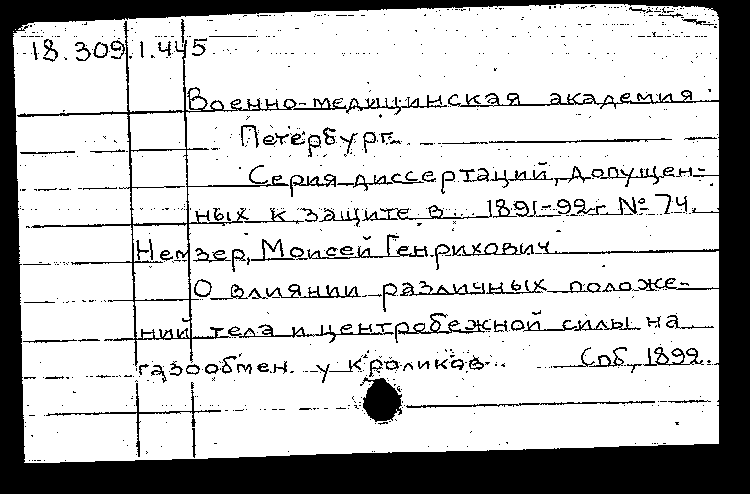 18.309.1.445
Военно-медицинская академия
Петербург.
Серия диссертаций, допущен-
ных к защите в 1891-92 г. № 74.
Немзер, Моисей Генрихович.
О влиянии различных положе-
ний тела и центробежной силы на
газообмен у кроликов. Спб, 1892.